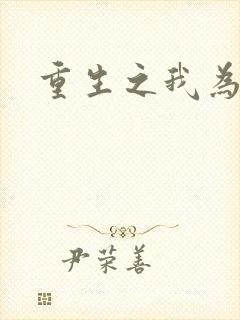 重生之我為
尹荣善